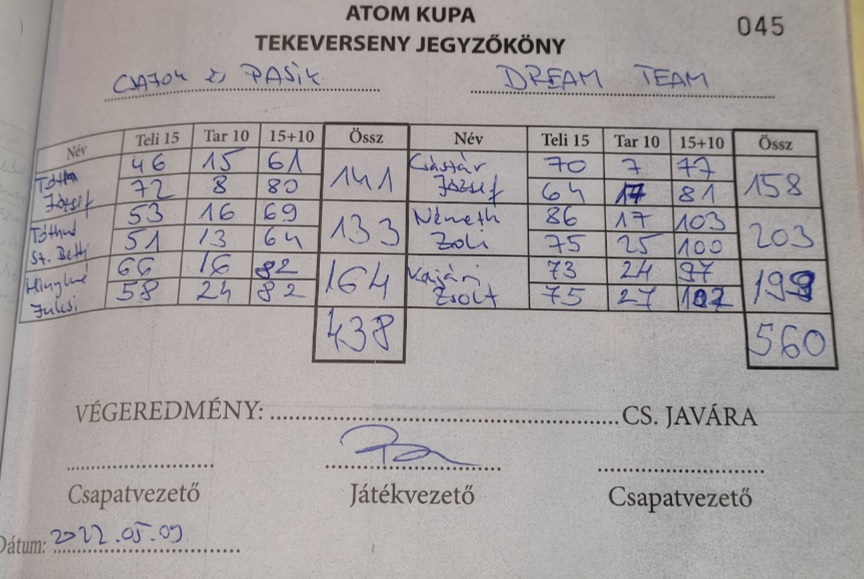 ATOM KUPA
045
TEKEVERSENY JEGYZŐKÖNY
CSAJOK és PASIK DREAM TEAM
Név Teli 15 Tar 10 15+10 Össz Név Teli 15 Tar 10 15+10 Össz
Tóth 46 15 61 141 Császár 70 7 77 158
József 72 8 80 József 64 17 81
Tóthné 53 16 69 133 Németh 86 17 103 203
Sz. Betti 51 13 64 Zoli 75 25 100
66 16 82 164 73 24 97 199
Julcsi 58 24 82 Zsolt 75 27 102
438 560
VÉGEREDMÉNY: CS. JAVÁRA
Csapatvezető Játékvezető Csapatvezető
Dátum: 2022.05.09